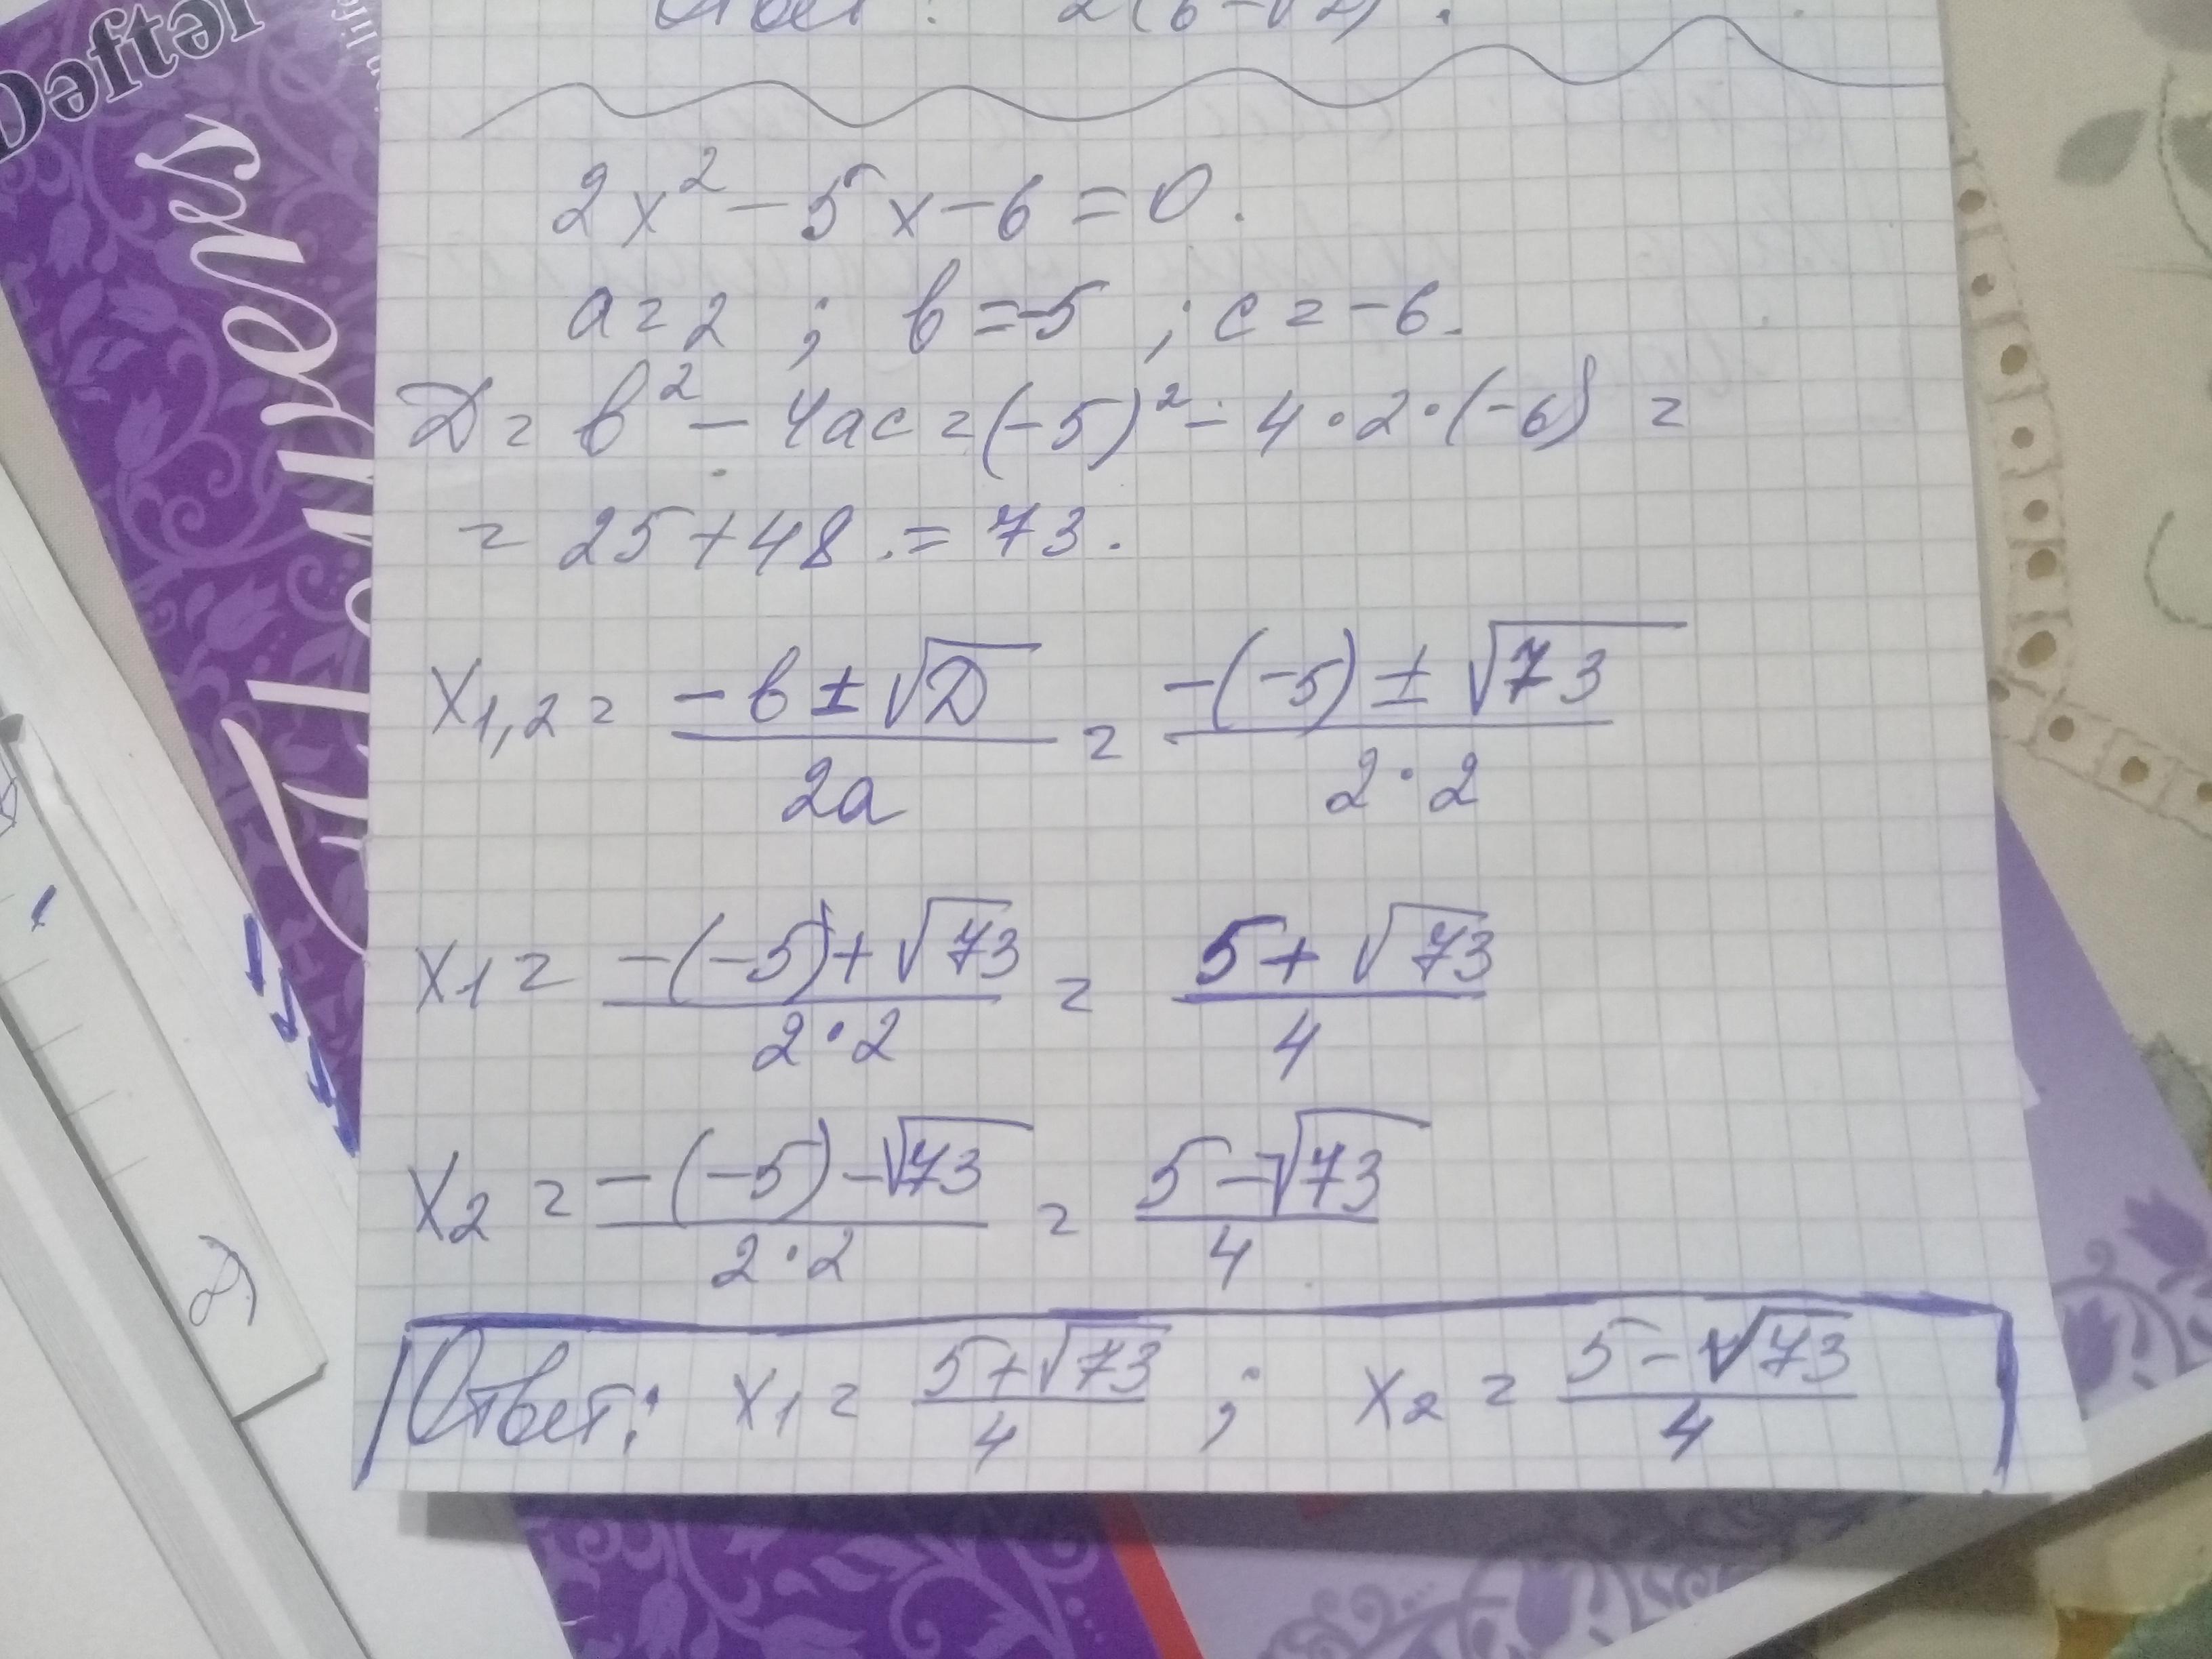 Ответ:
2x² − 5x − 6 = 0.
a = 2 ; b = −5 ; c = −6.
D = b² − 4ac = (−5)² − 4 · 2 · (−6) =
= 25 + 48 = 73.
x1,2 = (−b ± √D)/(2a) = (−(−5) ± √73)/(2 · 2)
x1 = (−(−5) + √73)/(2 · 2) = (5 + √73)/4
x2 = (−(−5) − √73)/(2 · 2) = (5 − √73)/4
Ответ: x1 = (5 + √73)/4 ; x2 = (5 − √73)/4
Dəftəri
2)